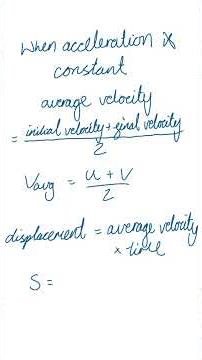 When acceleration is
constant
average velocity
= initial velocity + final velocity
2
Vavg = u + v
2
displacement = average velocity
x time
S =